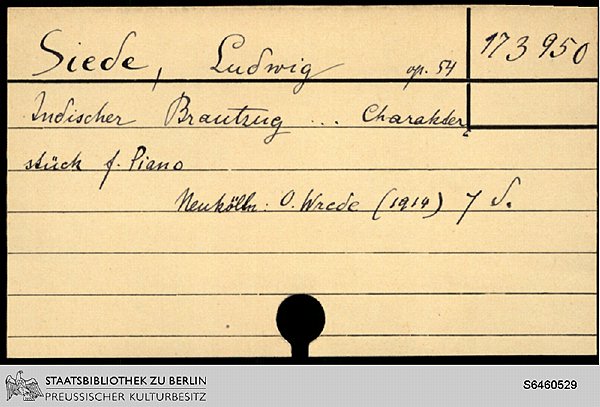 Siede, Ludwig op. 54 173950
Indischer Brautzug ... Charakter-
stück f. Piano
Neukölln: O. Wrede (1914) 7 S.
STAATSBIBLIOTHEK ZU BERLIN
PREUSSISCHER KULTURBESITZ
S6460529